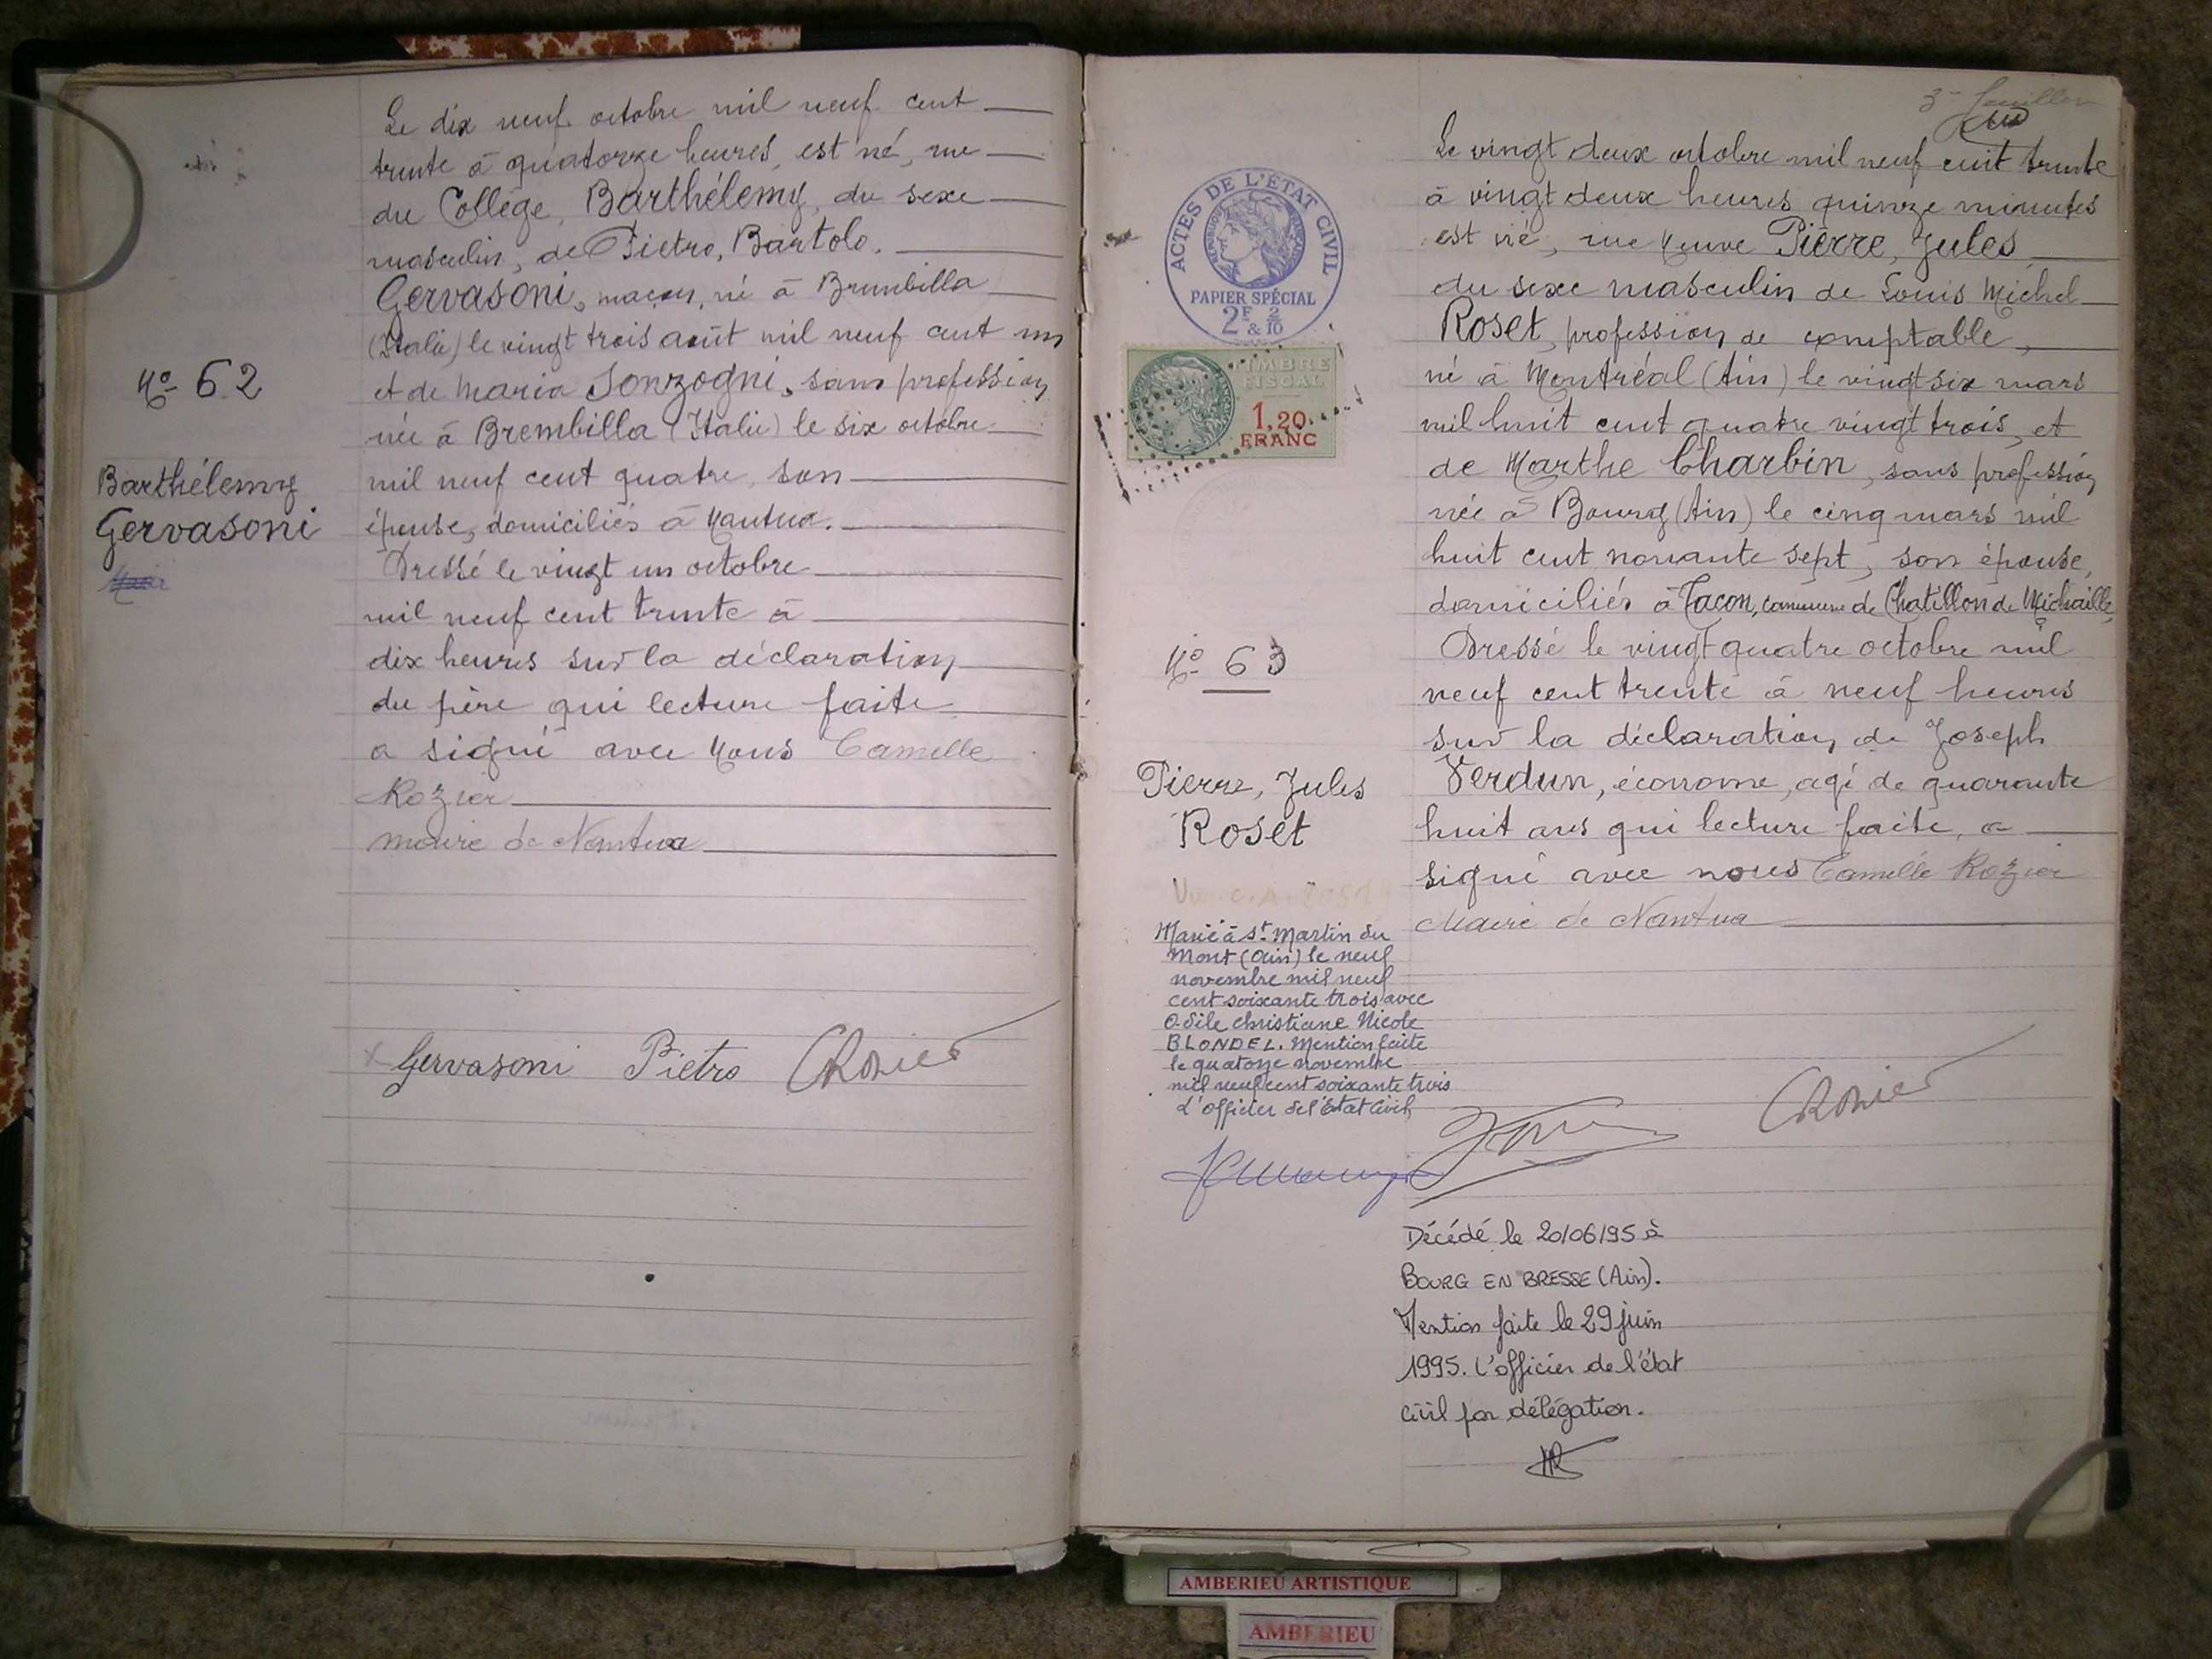 Le dix neuf octobre mil neuf cent
trente à quatorze heures, est né, rue
du Collège, Barthélemy, du sexe
masculin, de Pietro, Bartolo.
Gervasoni, maçon, né à Brembilla
(Italie) le vingt trois août mil neuf cent un
et de Maria Sonzogni, sans profession
née à Brembilla (Italie) le six octobre
mil neuf cent quatre, son
épouse, domiciliés à Nantua.
Dressé le vingt un octobre
mil neuf cent trente à
dix heures sur la déclaration
du père qui lecture faite
a signé avec Nous Camille
Rozier
maire de Nantua
No 62
Barthélemy
Gervasoni
Gervasoni Pietro CRozier
3e feuillet
Le vingt deux octobre mil neuf cent trente
à vingt deux heures quinze minutes
est né, rue Neuve Pierre, Jules
du sexe masculin de Louis Michel
Roset, profession de comptable,
né à Montréal (Ain) le vingt six mars
mil huit cent quatre vingt trois, et
de Marthe Charbin, sans profession
née à Bourg (Ain) le cinq mars mil
huit cent nonante sept, son épouse,
domiciliés à Tacon, commune de Chatillon de Michaille,
Dressé le vingt quatre octobre mil
neuf cent trente à neuf heures
sur la déclaration de Joseph
Verdun, économe, agé de quarante
huit ans qui lecture faite, a
signé avec nous Camille Rozier
Maire de Nantua
ACTES DE L'ÉTAT CIVIL
RÉPUBLIQUE FRANÇAISE
PAPIER SPÉCIAL
2F & 2/10
TIMBRE
FISCAL
1,20
FRANC
No 63
Pierre, Jules
Roset
Marié à St Martin du
Mont (Ain) le neuf
novembre mil neuf
cent soixante trois avec
Odile Christiane Nicole
BLONDEL. Mention faite
le quatorze novembre
mil neuf cent soixante trois
L'officier de l'Etat Civil,
CRozier
Décédé le 20/06/95 à
BOURG EN BRESSE (Ain).
Mention faite le 29 juin
1995. L'officier de l'état
civil par délégation.
AMBERIEU ARTISTIQUE
AMBERIEU